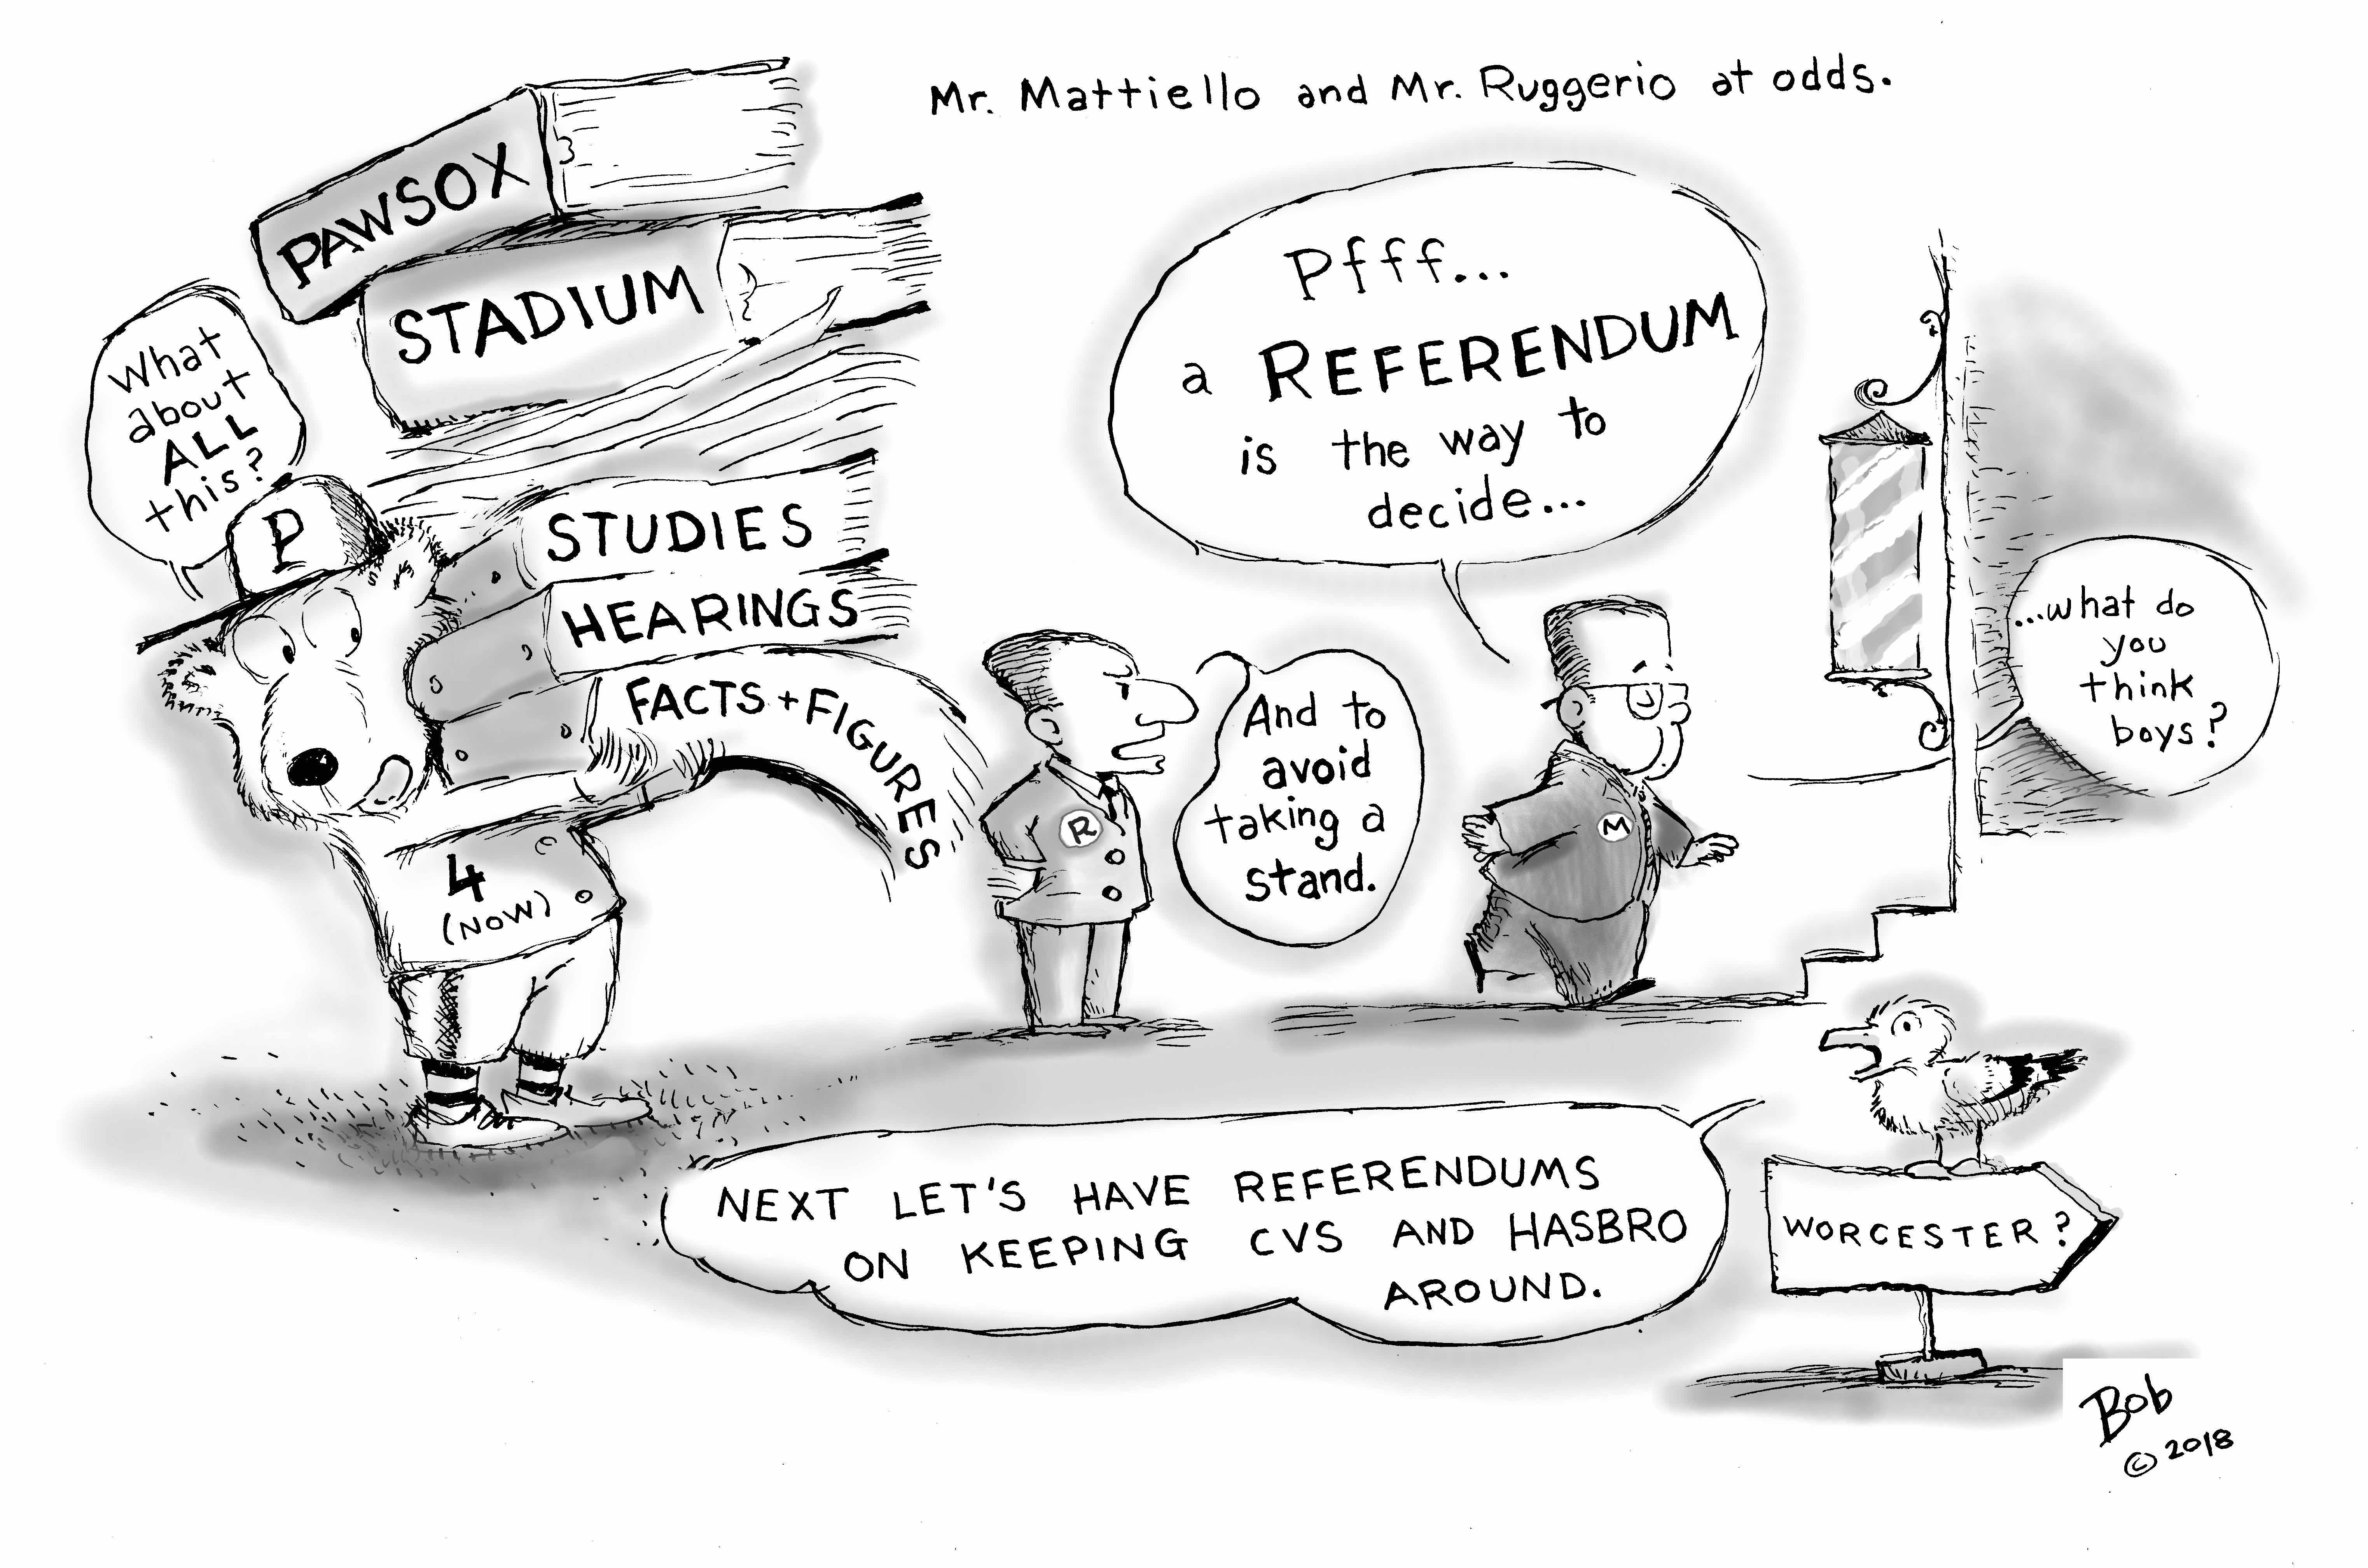 Mr. Mattiello and Mr. Ruggerio at odds.
PAWSOX
STADIUM
What
about
ALL
this?
P
STUDIES
HEARINGS
FACTS + FIGURES
4
(NOW)
Pfff...
a REFERENDUM
is the way to
decide...
R
And to
avoid
taking a
stand.
M
...what do
you
think
boys?
NEXT LET'S HAVE REFERENDUMS
ON KEEPING CVS AND HASBRO
AROUND.
WORCESTER?
Bob
© 2018